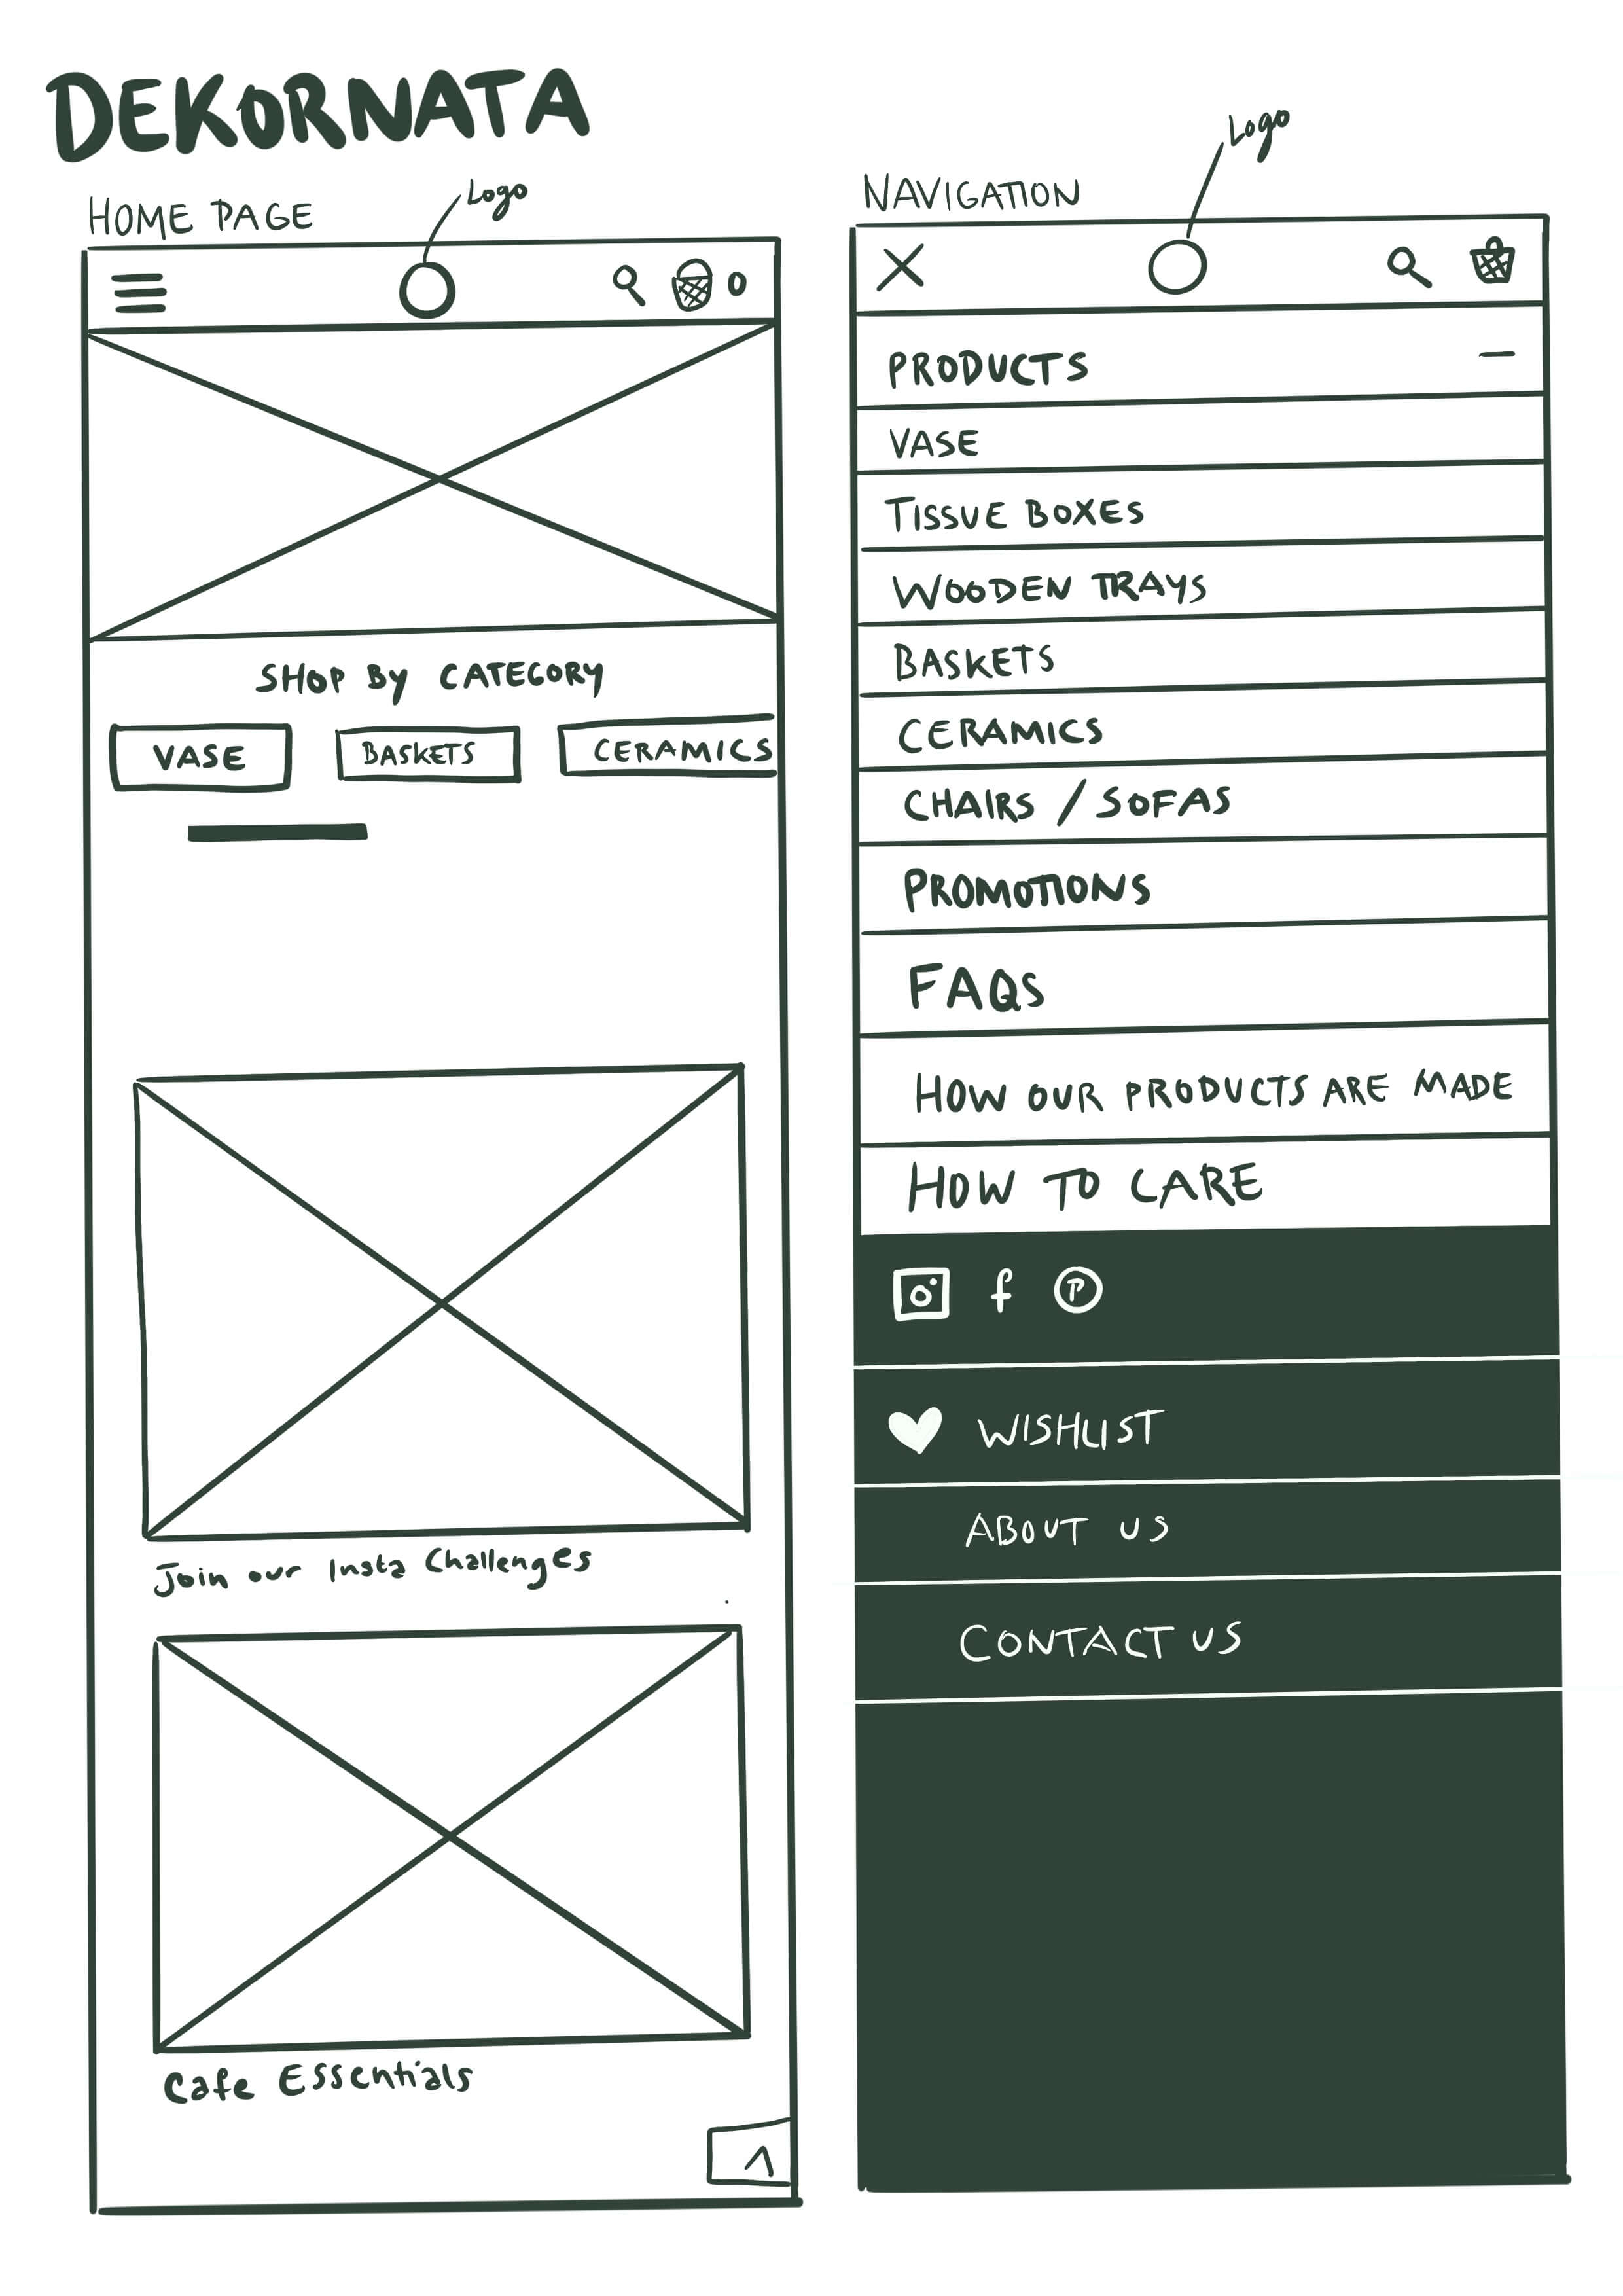 DEKORNATA
HOME PAGE
Logo
0
SHOP BY CATEGORY
VASE
BASKETS
CERAMICS
Join our Insta Challenges
Cafe Essentials
NAVIGATION
Logo
PRODUCTS
VASE
TISSUE BOXES
WOODEN TRAYS
BASKETS
CERAMICS
CHAIRS / SOFAS
PROMOTIONS
FAQS
HOW OUR PRODUCTS ARE MADE
HOW TO CARE
f P
WISHLIST
ABOUT US
CONTACT US